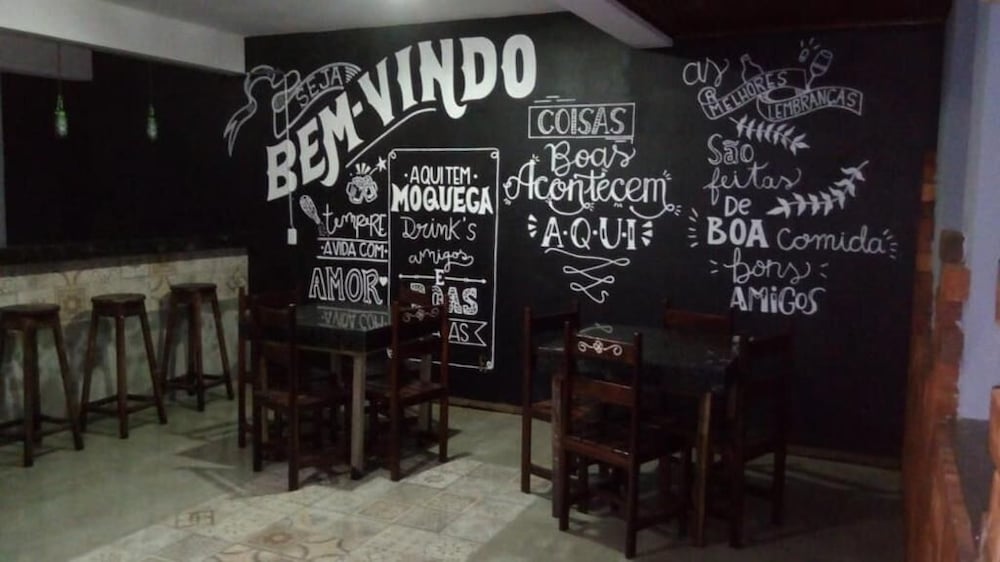 SEJA
BEM-VINDO
tempere
A VIDA COM
AMOR
AQUI TEM
MOQUEGA
Drink's
amigos
E
COISAS
Boas
Acontecem
AQUI
as
MELHORES
LEMBRANÇAS
São
feitas
DE
BOA comida
bons
AMIGOS